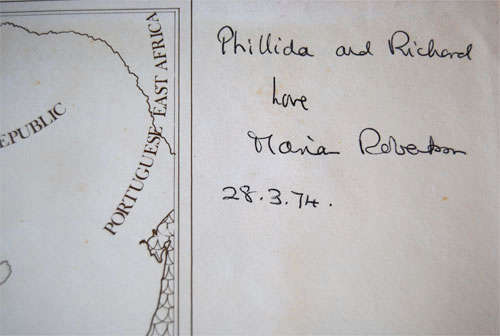 PORTUGUESE EAST AFRICA
EPUBLIC
Phillida and Richard
love
Marian Robertson
28.3.74.